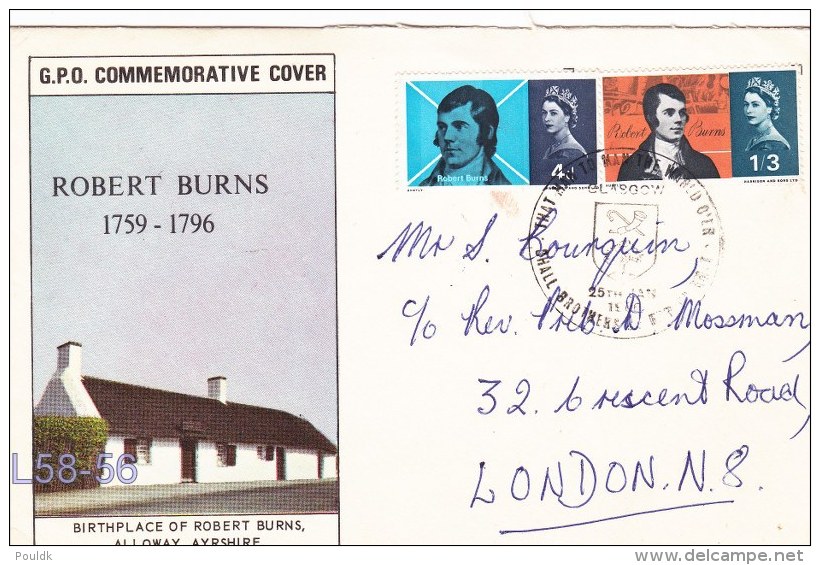 G.P.O. COMMEMORATIVE COVER
ROBERT BURNS
1759 - 1796
L58-56
BIRTHPLACE OF ROBERT BURNS,
ALLOWAY, AYRSHIRE
Robert Burns
4
Robert Burns
1/3
HARRISON AND SONS LTD
THAT MAN TO MAN THE WARLD O'ER
SHALL BROTHERS BE
GLASGOW
25TH JAN
Mr S. Bourquin,
c/o Rev. Preb. D Mossman,
32. Crescent Road,
LONDON. N. 8.
Pouldk
www.delcampe.net